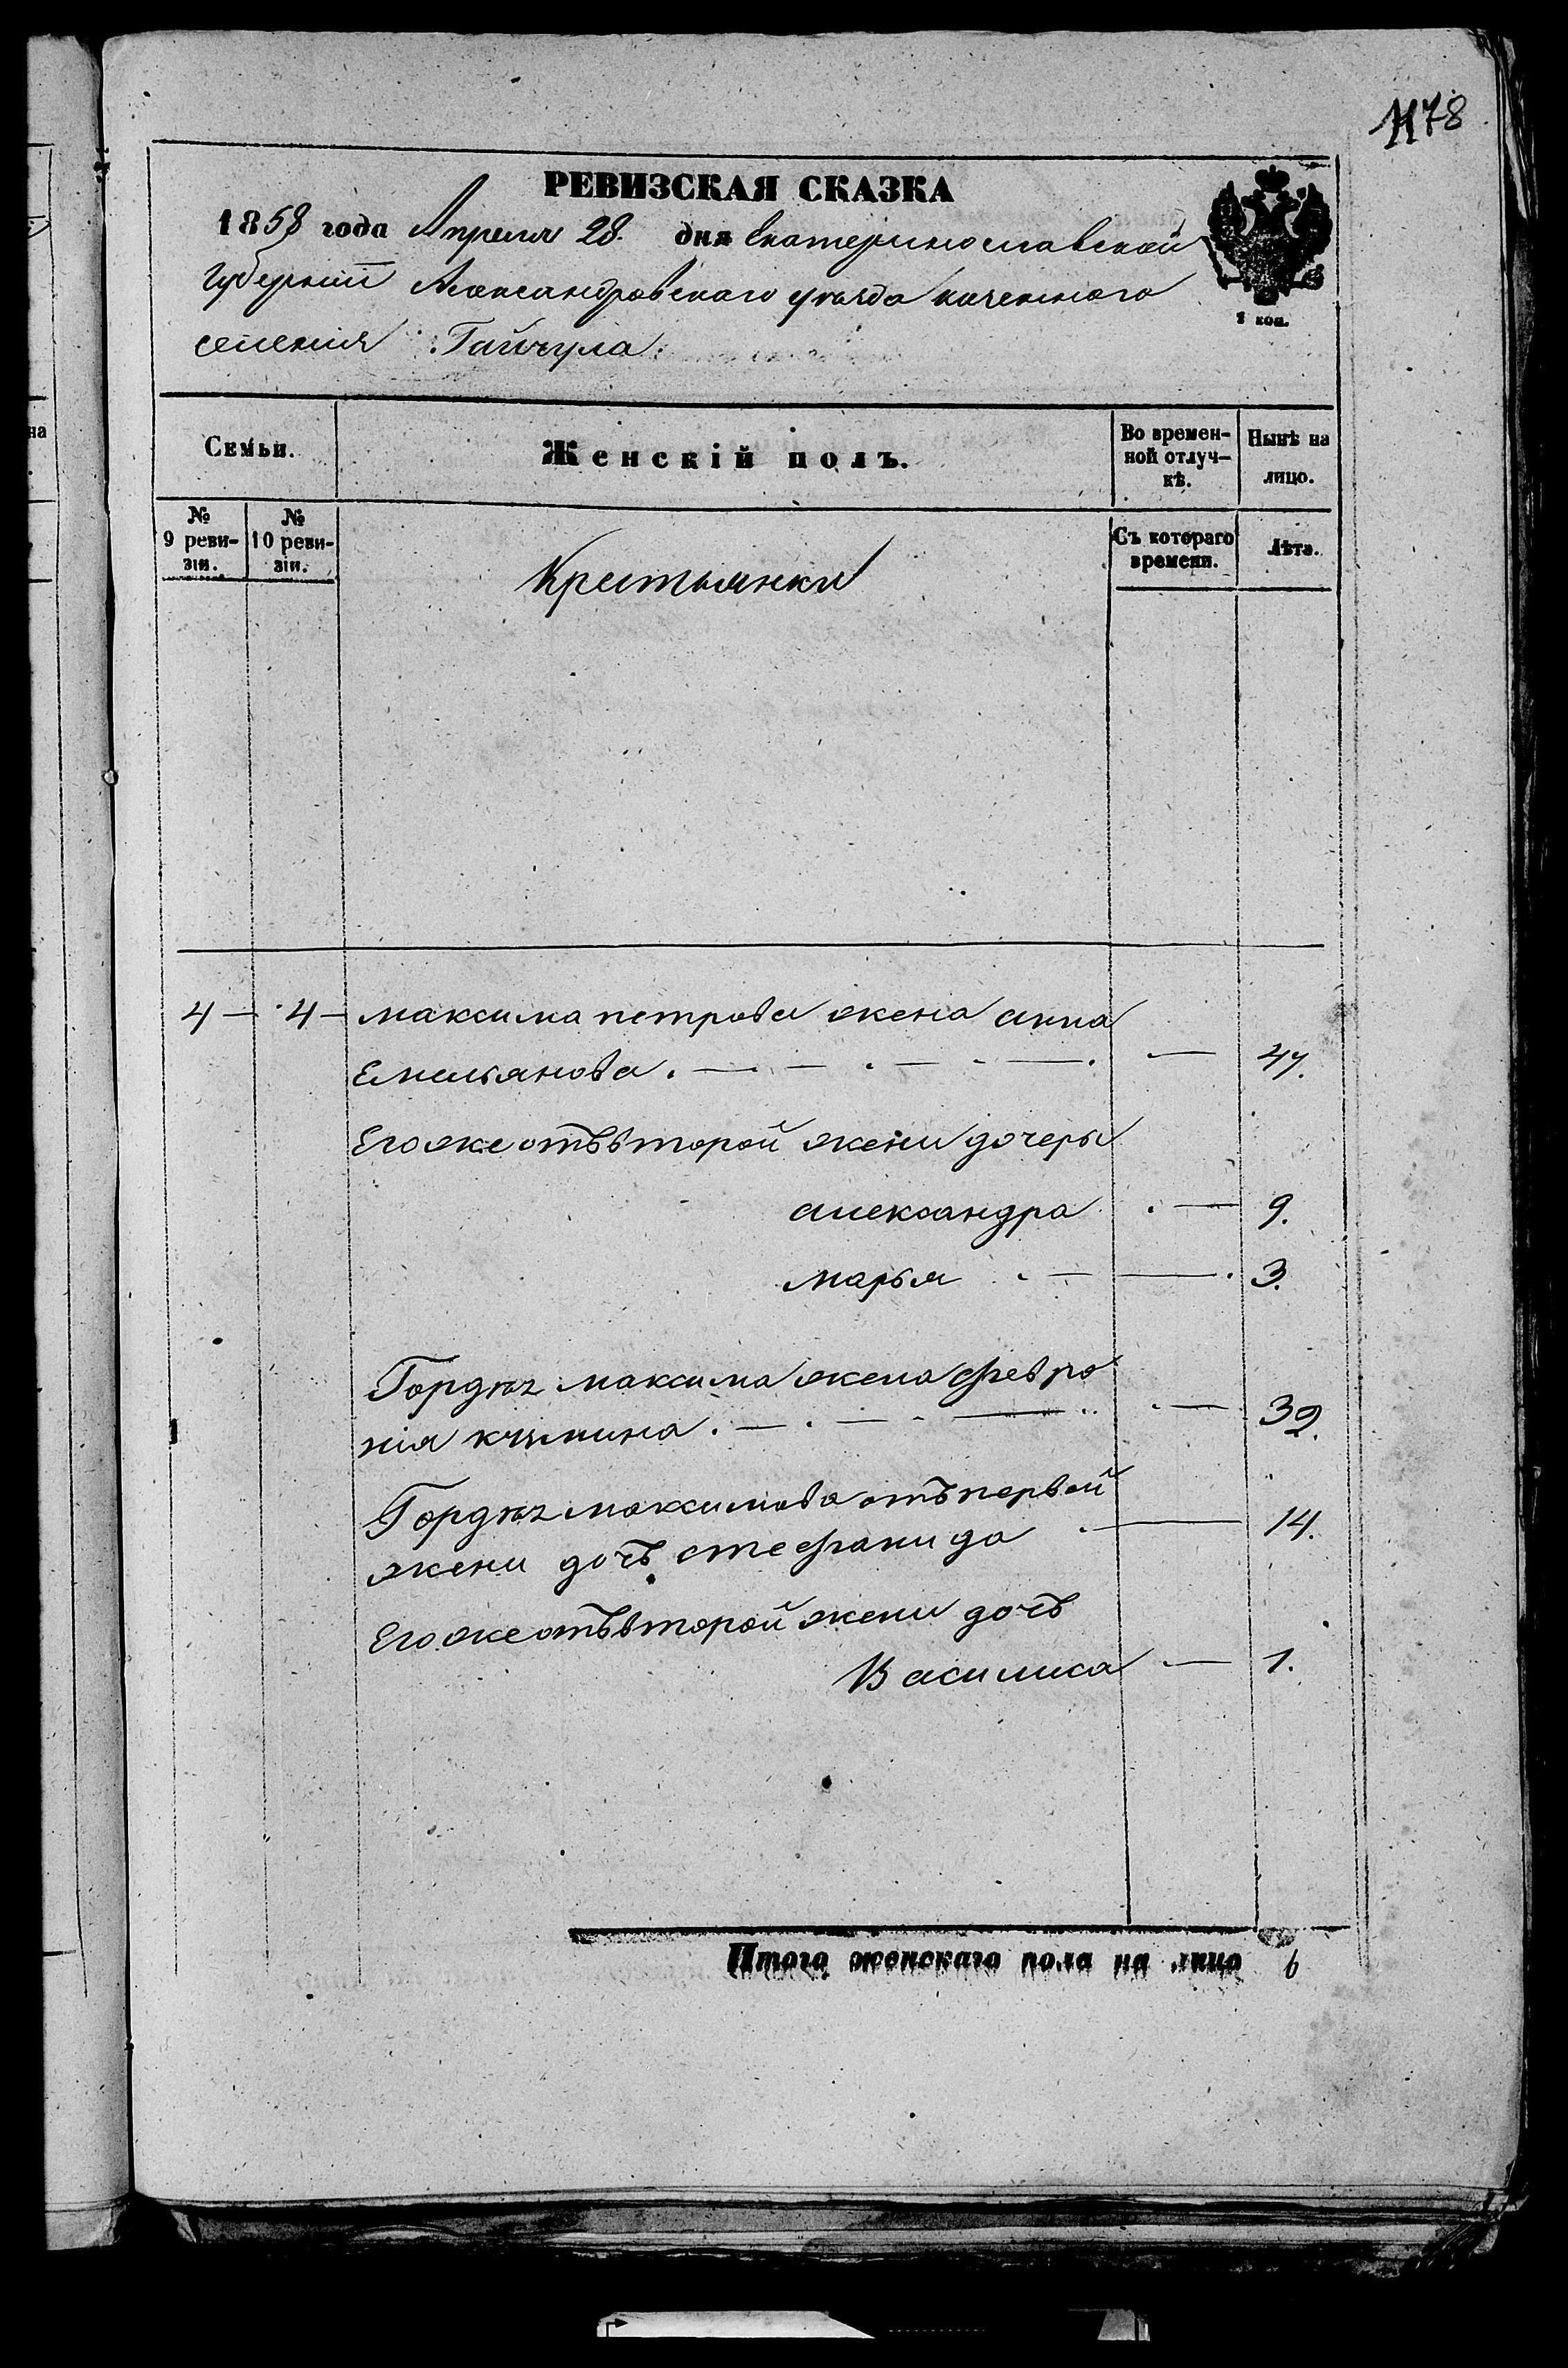 1178
РЕВИЗСКАЯ СКАЗКА
1858 года Апреля 28. дня Екатеринославской
Губерніи Александровскаго уѣзда казенного
селения Гайчула.
1 коп.
Семьи. Женскій полъ. Во времен-ной отлуч-кѣ. Нынѣ на лицо.
№ 9 реви-зіи. № 10 реви-зіи. Крестьянки Съ котораго времени. Лѣта.
4 — 4 — максима петрова жена анна
Емельянова. — — — — — 47.
Его же отъ второй жени дочеры
александра — 9.
марья — — 3.
Гордѣя максима жена февро
нія — — — — 39.
Гордѣя максимова отъ первой
жени дочъ стефанида — 14.
Его же отъ второй жени дочъ
Василиса — 1.
Итого женскаго пола на лицо 6